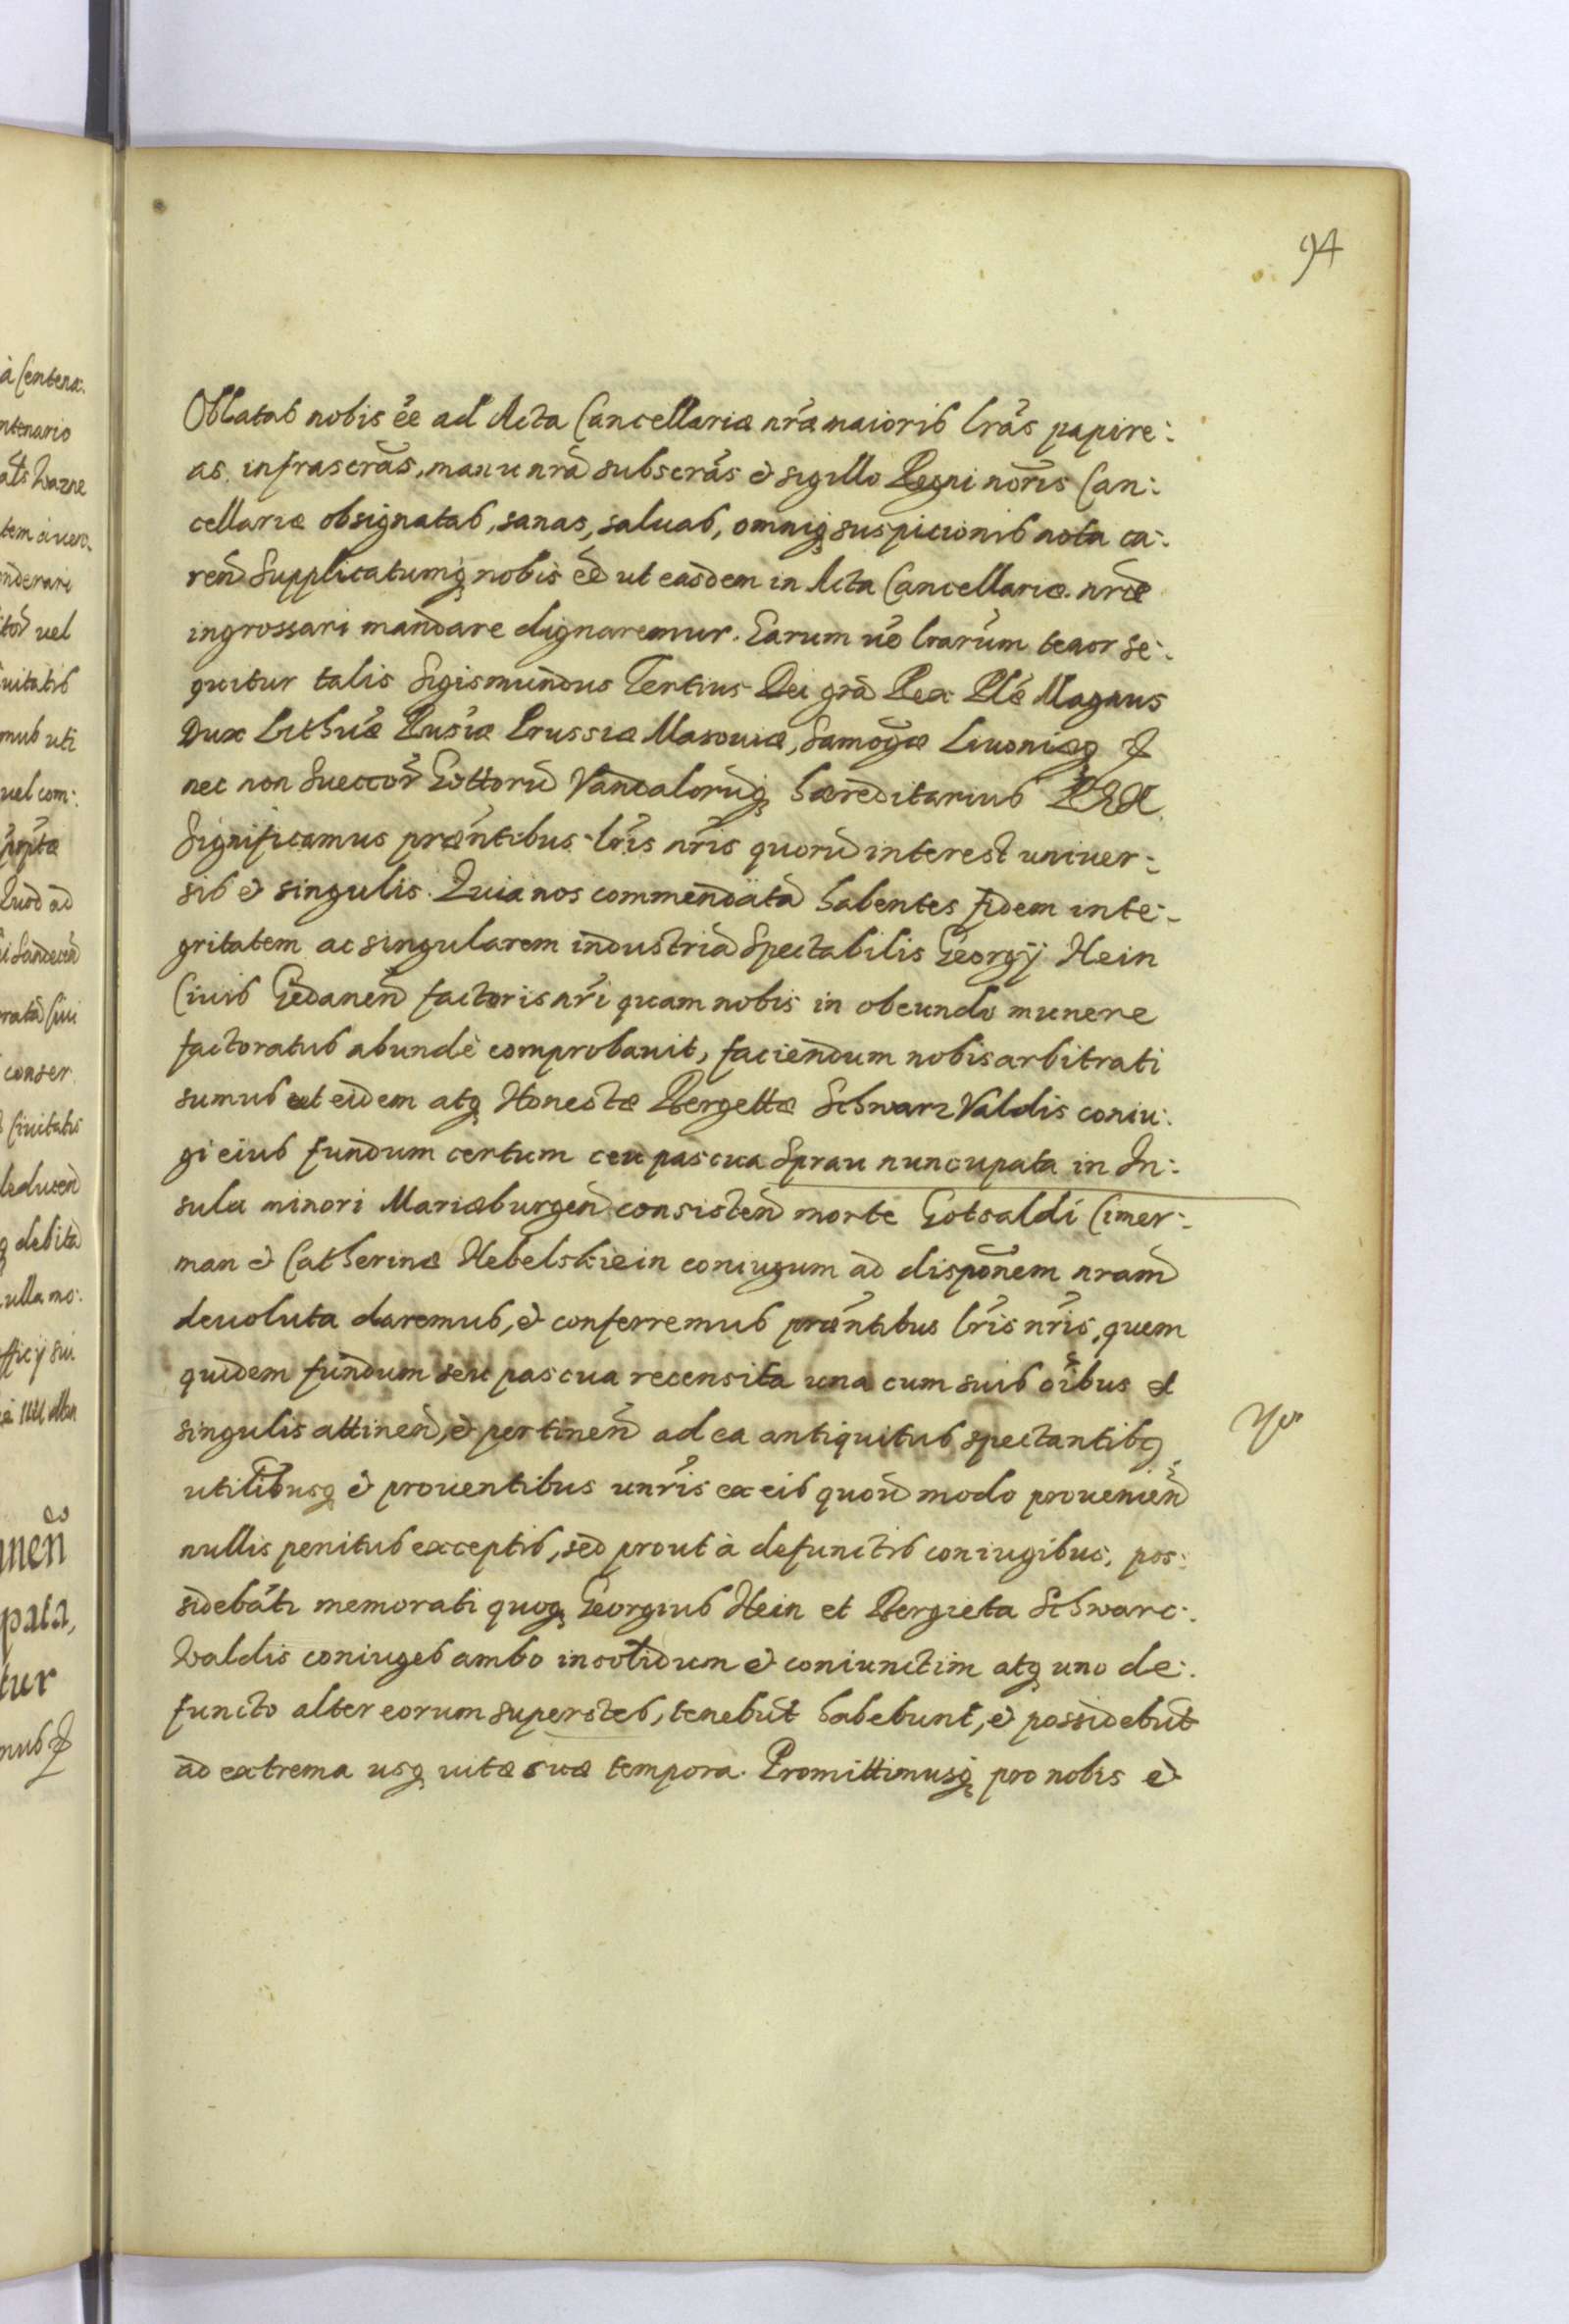 94
Oblatas nobis ẽe ad Acta Cancellariæ nr̃æ maioris lr̃as papire:
as infrascr̃as, manu nr̃a subscr̃as et sigillo Regni nõris Can:
cellariæ obsignatas, sanas, saluas, omniq́ suspicionis nota ca:
reñ Supplicatumq́ nobis ẽe ut easdem in Acta Cancellariæ nr̃æ
ingrossari mandare dignaremur. Earum ṽo lrarũm tenor se:
quitur talis Sigismundus Tertius Dei grã Rex Plẽ Magnus
Dux Lithũæ Rusiæ Prussiæ Masouiæ, Samog̃æ Liuoniæq́ &
nec non Sueccor̃ Gottorũ Vandalorũq́ hæreditarius REX
Significamus præñtibus lr̃is nr̃is quorũ interest uniuer:
sis et singulis. Quia nos commendatã habentes fidem inte:
gritatem ac singularem industriã Spectabilis Georgÿ Hein
Ciuis Gedaneñ factoris nr̃i quam nobis in obeundo munere
factoratus abundè comprobauit, faciendum nobis arbitrati
sumus ut eidem atq́ Honestæ Bergettæ Schwarz Valdis coniu:
gi eius fundum certum ceu pascua Sprau nuncupata in In:
sula minori Mariæburgeñ consisteñ morte Gotsaldi Cimer:
man et Catherinæ Hebelskiein coniugum ad disponẽm nram̃
deuoluta daremus, et conferremus præñtibus lr̃is nr̃is, quem
quidem fundum seu pascua recensita una cum suis oĩbus et
singulis attineñ, et pertineñ ad ea antiquitus spectantibq́
utilib̃usq́ et prouentibus unr̃is ex eis quoũ modo prouenieñ
nullis penitus exceptis, sed prout à defunctis coniugibus, pos:
sidebãt memorati quoq́ Georgius Hein et Bergieta Schwarc:
waldis coniuges ambo insolidum et coniunctim atq́ uno de:
functo alter eorum superstes, tenebũt habebunt, et possidebũt
ad extrema usq́ uitæ suæ tempora. Promittimusq́ pro nobis et